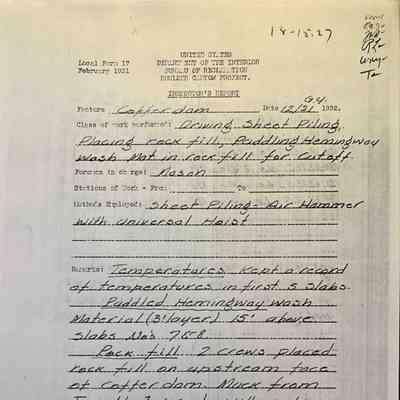 18-15.27
UNITED STATES
Local Form 17 DEPARTMENT OF THE INTERIOR
February 1931 BUREAU OF RECLAMATION
BOULDER CANYON PROJECT.
INSPECTOR'S REPORT
Feature Cofferdam Date 12/21 1932.
Class of work performed: Driving Sheet Piling,
Placing rock fill, Puddling Hemingway
Wash Mat in rock fill for Cutoff.
Foreman in charge: Nason
Stations of Work - From: To
Methods Employed: Sheet Piling - Air Hammer
with Universal Hoist
Remarks: Temperatures Kept a record
of temperatures in first 5 slabs.
Puddled Hemingway Wash
Material (3' layer) 15' above
slabs No's 7&8
Rock fill 2 crews placed
rock fill on upstream face
of Cofferdam. Muck from